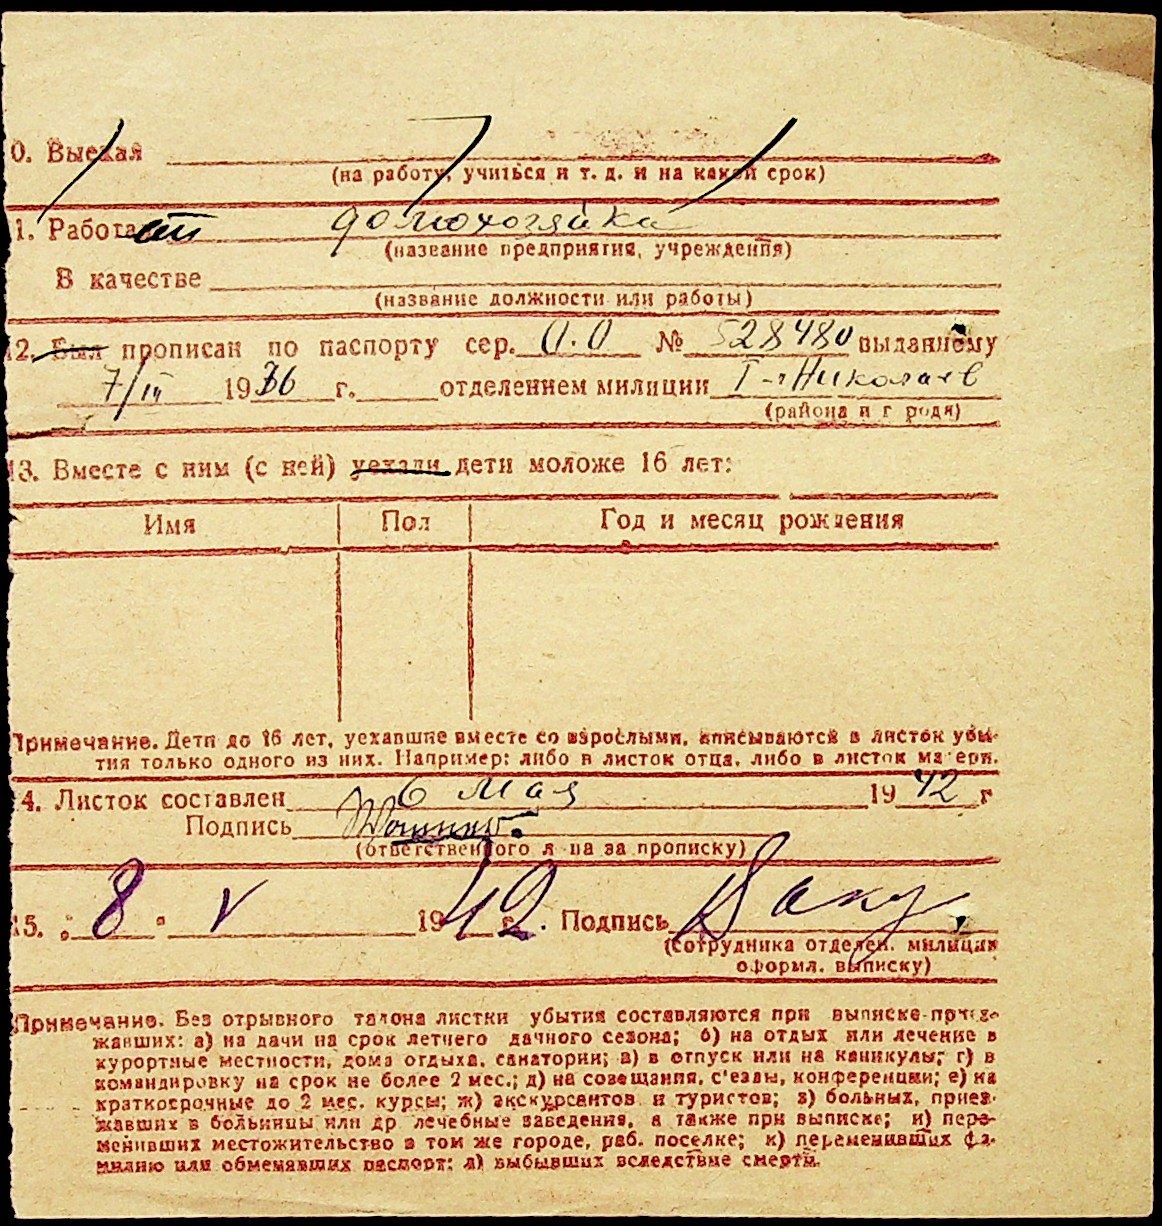 0. Выехал
(на работу, учиться и т. д. и на какой срок)
1. Работает домохозяйка
(название предприятия, учреждения)
В качестве
(название должности или работы)
12. Был прописан по паспорту сер. О.О № 528480 выданному
7/III 1936 г. отделением милиции I-г Николаев
(района и г родя)
13. Вместе с ним (с ней) уехали дети моложе 16 лет:
Имя Пол Год и месяц рождения
Примечание. Дети до 16 лет, уехавшие вместе со взрослыми, вписываются в листок убы-
тия только одного из них. Например: либо в листок отца, либо в листок матери.
4. Листок составлен 6 мая 1942 г
Подпись
(ответственного л-ца за прописку)
15. „8" V 1942 г. Подпись
(сотрудника отделен. милиции
оформл. выписку)
Примечание. Без отрывного талона листки убытия составляются при выписке-приез-
жавших: а) на дачи на срок летнего дачного сезона; б) на отдых или лечение в
курортные местности, дома отдыха, санатории; в) в отпуск или на каникулы; г) в
командировку на срок не более 2 мес.; д) на совещания, с'езды, конференции; е) на
краткосрочные до 2 мес. курсы; ж) экскурсантов и туристов; з) больных, приез-
жавших в больницы или др лечебные заведения, а также при выписке; и) пере-
менивших местожительство в том же городе, раб. поселке; к) переменивших фа-
милию или обменявших паспорт; л) выбывших вследствие смерти.